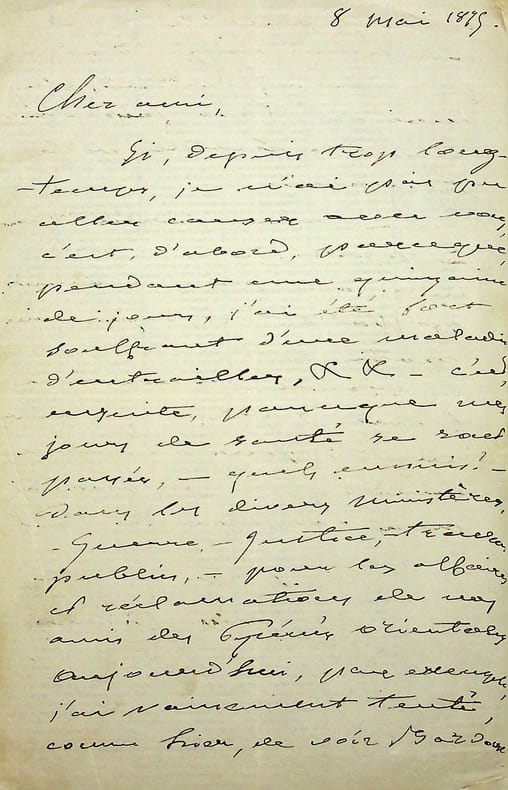 8 mai 1875.
Cher ami,
Si, depuis trop long-
temps, je n'ai pas pu
aller causer avec vous,
c'est, d'abord, parceque
pendant une quinzaine
de jours, j'ai été fort
souffrant d'une maladie
d'entrailles, & & – c'est,
ensuite, parceque mes
jours de santé se sont
passés, – quels ennuis! –
dans les divers ministères,
– Guerre, – Justice, – travaux
publics, – pour les affaires
et réclamations de nos
amis des Pyrénées orientales
aujourd'hui, par exemple,
j'ai vainement tenté,
comme hier, de voir